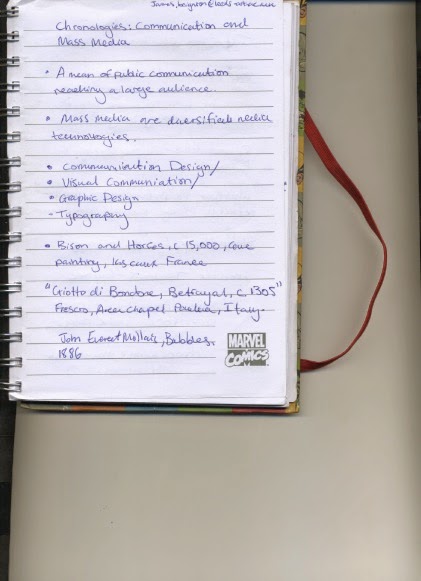 Chronologies: Communication and
Mass Media
• A mean of public communication
reaching a large audience.
• Mass media are diversified media
technologies.
• Communication Design/
• Visual Communiation/
• Graphic Design
- Typography
• Bison and Horses, c 15,000, Cave
painting, France
"Giotto di Bondone, Betrayal, c 1305"
Fresco, Chapel Italy.
John Bubbles,
1886
MARVEL
COMICS